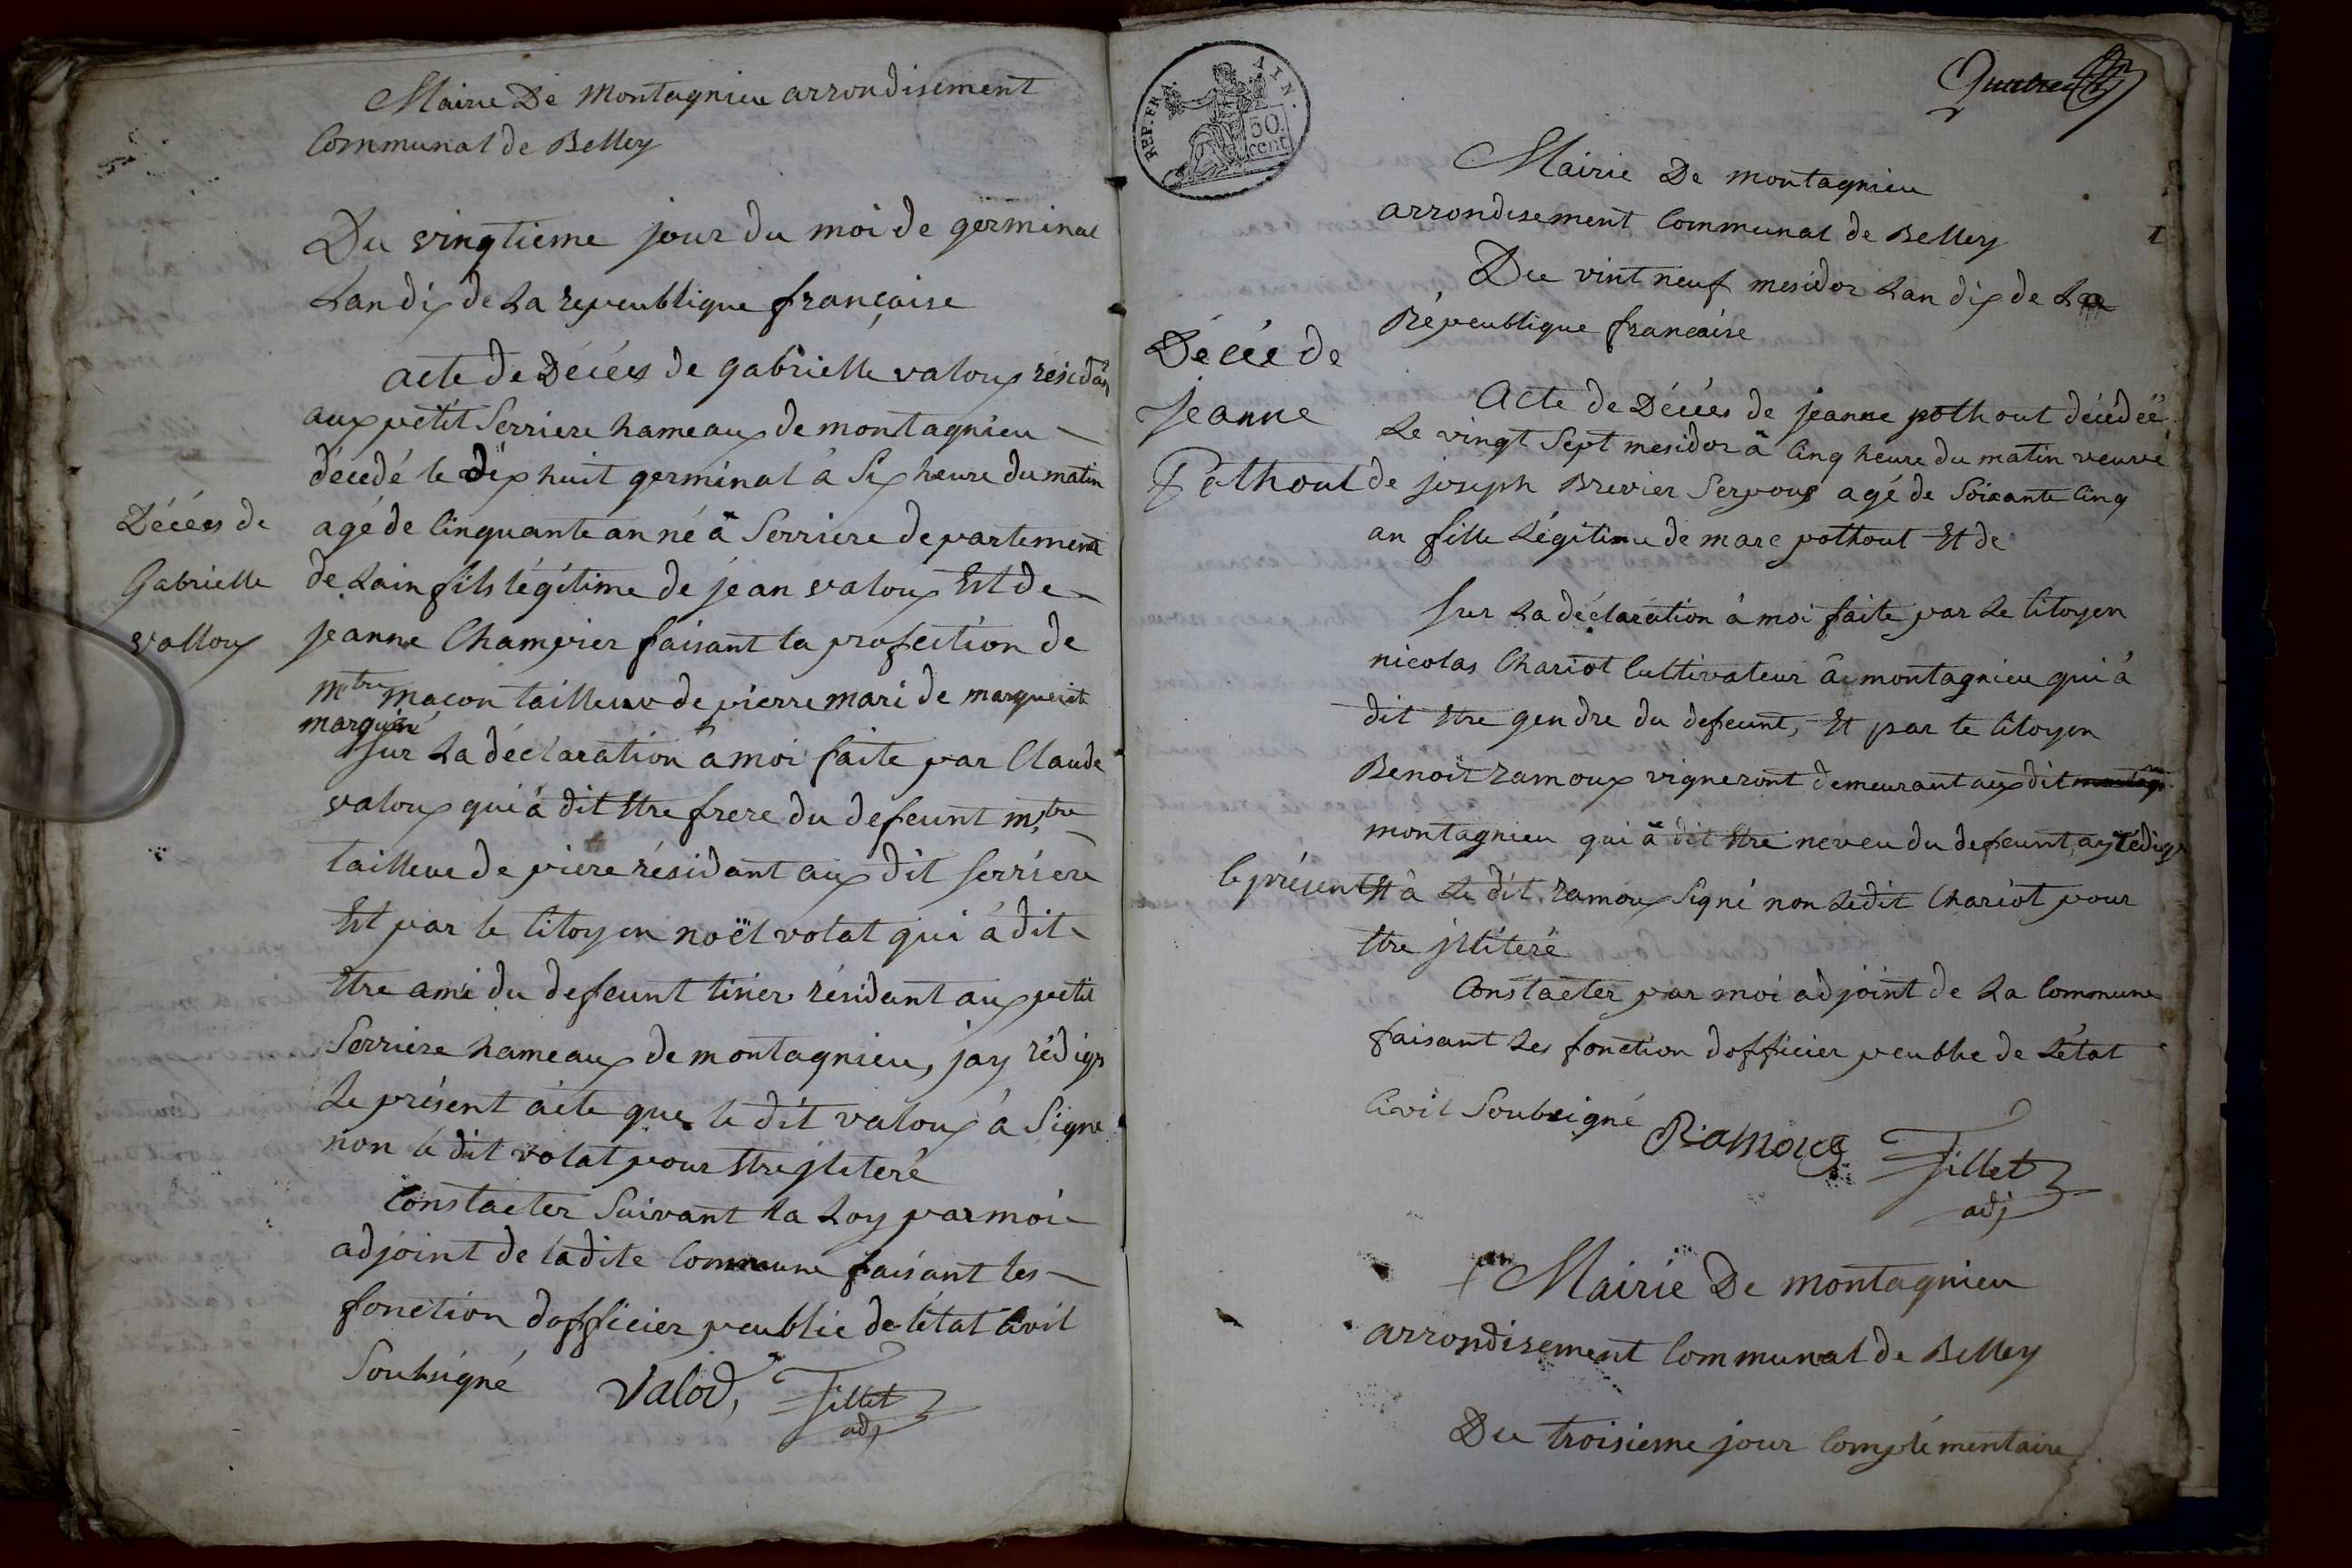 Mairie De Montagnieu arrondisement
Communal de Belley
Du vingtieme jour du moi de germinal
Lan dix de La repeublique française
acte de Décés de gabrielle valoux résidan
aux petit Serriere hameaux de montagnieu
décedé le dix huit germinal à Six heure du matin
Décées de
Gabrielle
valloux
agé de Cinquante an né à Serriere departement
de Lain fils légitime de jean valoux Est de
jeanne Champier faisant la profection de
mtre macon tailleur de pierre mari de marguerite
marguin
sur La déclaration à moi faite par Claude
valoux qui à dit Etre frere du defeunt mtre
tailleur de piere résidant aux dit serriere
Est par le Citoyen noël volat qui à dit
Etre ami du defeunt tiner résidant aux petit
Serriere hameaux de montagnieu, jay rédigé
Le présent acte que le dit valoux à Signé
non le dit volat pour Etre jliteré
Constacter Suivant La Loy par moi
adjoint de ladite Commune faisant les
fonction dofficier peublic de létat Civil
Soubsigné Valod, Tillet
adj
REP. FRA. AIN.
50
cent
Mairie De montagnieu
arrondisement Communal de Belley
Du vint neuf mesidor Lan dix de La
Répeublique francaise
Décée de
jeanne
Pothout
Acte de Décées de jeanne pothout décédée
Le vingt Sept mesidor à Cinq heure du matin veuve
de joseph Brevier Servoux agé de Soixante Cinq
an fille Légitime de marc pothout Et de
sur La déclaration à moi faite par Le Citoyen
nicolas Chariot Cultivateur à montagnieu qui à
dit Etre gendre du defeunt, Et par le Citoyen
Benoit ramoux vigneront demeurant aux dit
montagnieu qui à dit Etre neveu du defeunt, ay rédigé
le présent Et à Le dit ramoux Signé non Ledit Chariot pour
Etre jlliteré
Constacter par moi adjoint de La Commune
faisant Les fonction dofficier peublic de Létat
Civil Soubsigné Ramoux Tillet
adj
Mairie De montagnieu
arrondisement Communal de Belley
Du troisieme jour Complémentaire